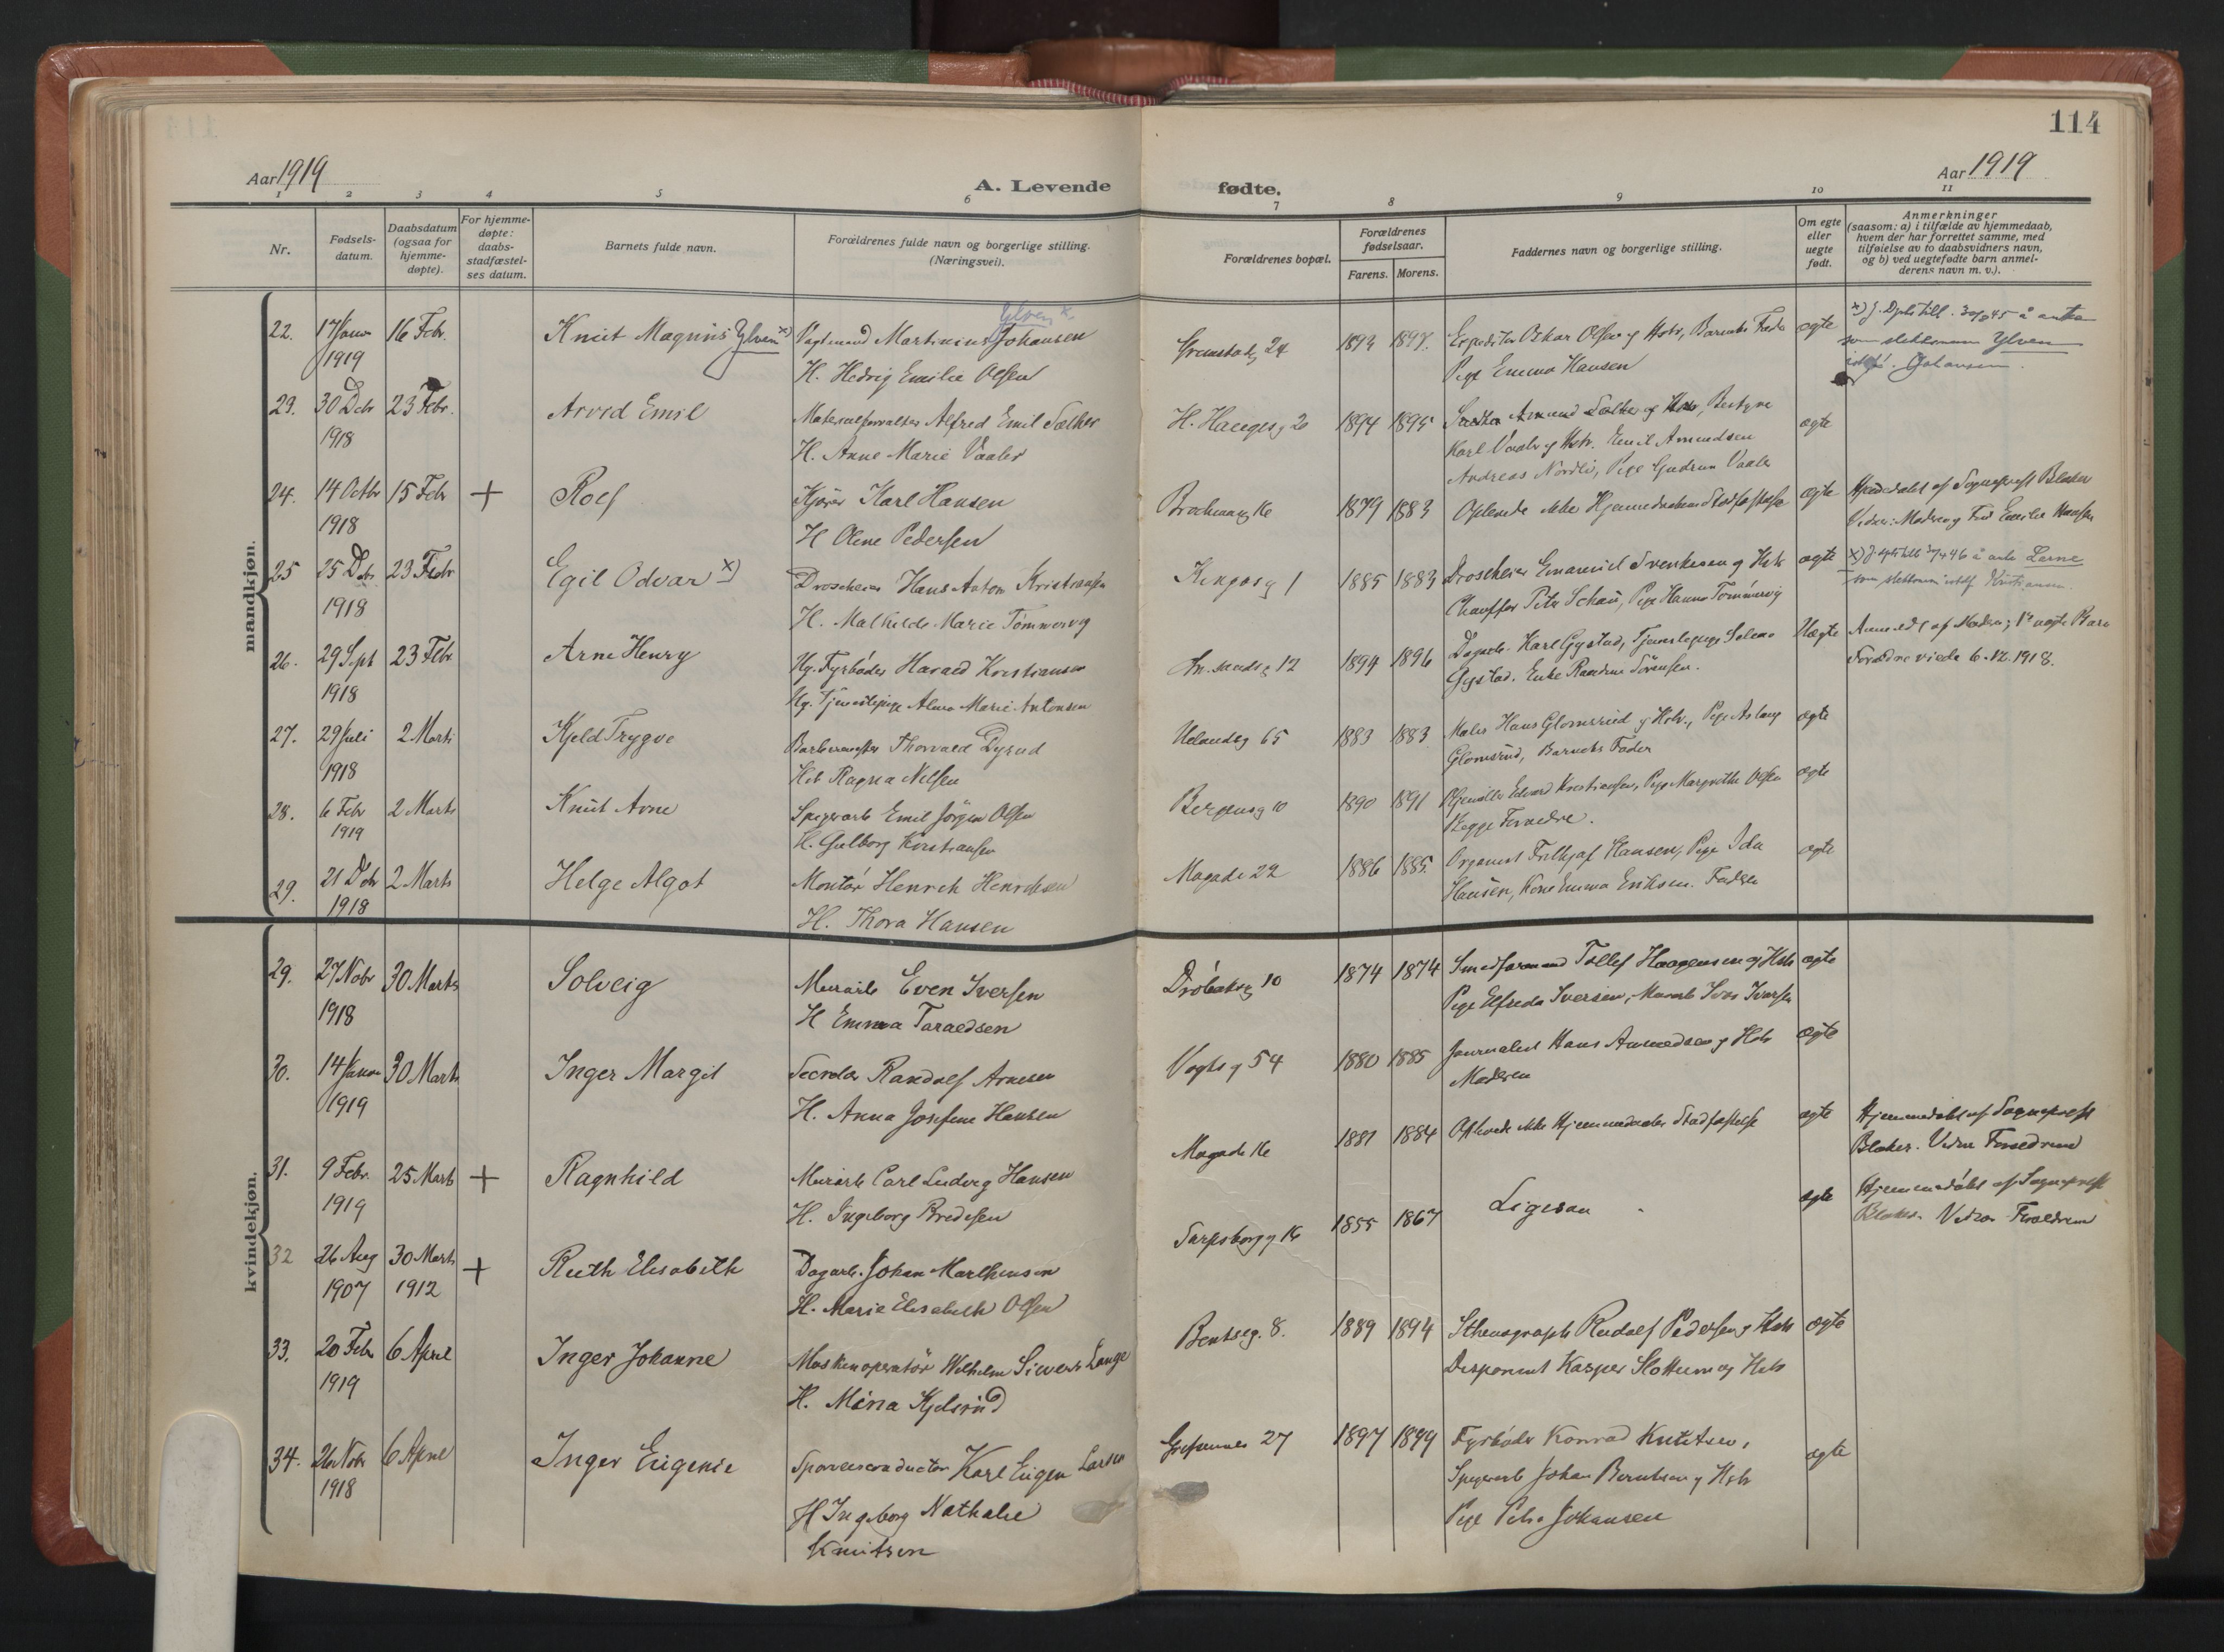 114
Aar 1919
A. Levende
fødte.
Aar 1919
1 2 3 4 5 6 7 8 9 10 11
Nr.
Fødsels-
datum.
Daabsdatum
(ogsaa for
hjemme-
døpte).
For hjemme-
døpte:
daabs-
stadfæstel-
ses datum.
Barnets fulde navn.
Forældrenes fulde navn og borgerlige stilling.
(Næringsvei).
Forældrenes bopæl.
Forældrenes
fødselsaar.
Farens. Morens.
Faddernes navn og borgerlige stilling.
Om egte
eller
uegte
født.
Anmerkninger
(saasom: a) i tilfælde av hjemmedaab,
hvem der har forrettet samme, med
tilføielse av to daabsvidners navn,
og b) ved uegtefødte barn anmel-
derens navn m. v.).
mandkjøn.
22. 17 Januar 16 Febr. Knut Magnus Ylven x) Vagtmand Martinius Johansen 1893 1897. Expeditør Oskar Olsen og Hstr, Barnets Fader ægte
1919 H. Hedvig Emilie Olsen Pige Emma Hansen
som slektsnavn Ylven
istf. Johansen.
23. 30 Dcbr 23 Febr. Arvid Emil Materialforvalter Alfred Emil Sæther H. Haugesg 2 1894 1895 Amund Sæther og Hstr, Bestyrer ægte
1918 H. Anne Marie Vaaler Karl Vaaler og Hstr. Emil Amundsen
Andreas Nordli, Pige Gudrun Vaaler
24. 14 Octbr 15 Febr + Rolf Kjører Karl Hansen 16 1879 1883 Oplevede ikke Hjemmedaabens Stadfæstelse ægte Hjemmedøbt af Sogneprest Blaker
1918 H Oline Pedersen Vidner: Moder og Frk Emilie Hansen
25 25 Dcbr. 23 Febr Egil Odvar x) Droscheeier Hans Anton Kristiansen 1 1885 1883 Droscheeier Emanuel Svendsen og Hstr ægte
1918 H. Mathilde Marie Tømmervig Chauffør Peter Schau, Pige Hanna Tømmervig
som slektsnavn istf Kristiansen.
26. 29 Sept 23 Febr Arne Henry Ug. Fyrbøder Harald Kristiansen 12 1894 1896 Dagarb. Karl Gystad, Tjenestepige Selma Uægte Anmeldt af Moderen; 1ste uægte Barn
1918 Ug. Tjenestepige Alma Marie Antonsen Gystad. Enke Randine Sørensen. Forældre viede 6.12.1918.
27. 29 Juli 2 Marts Kjeld Trygve Barbermester Thorvald Dyrud Uelandsg 65 1883 1883 Maler Hans Glomsrud og Hstr., Pige Aslaug ægte
1918 Hst Ragna Nilsen Glomsrud, Barnets Fader
28. 6 Febr 2 Marts Knut Arne Spigerarb Emil Jörgen Olsen Bergensg 10 1890 1891 Edvard Kristiansen, Pige Margrethe Olsen ægte
1919 H. Gulborg Kristiansen Begge Forældre.
29. 21 Dcbr 2 Marts Helge Algot Montør Henrik Henriksen Magade 22 1886 1885. Organist Fridtjof Hansen, Pige Ida ægte
1918 H. Thora Hansen Hansen, Kone Emma Eriksen. Fader
kvindekjøn.
29. 27 Novbr 30 Marts Solveig Murarb Even Iversen Drøbaksg 10 1874 1874 Smedformand Tollef Haagensen og Hstr ægte
1918 H Emma Taraldsen Pige Elfreda Iversen, Murarb Ivar Iversen
30. 14 Januar 30 Marts Inger Margit Secretær Randolf Arnesen Vogtsg 54 1880 1885 Journalist Hans Amundsen og Hstr ægte
1919 H. Anna Josefine Hansen Moderen
31. 9 Febr. 25 Marts + Ragnhild Murarb Carl Ludvig Hansen Magade 16 1881 1884 Oplevede ikke Hjemmedaabens Stadfæstelse ægte Hjemmedøbt af Sogneprest
1919 H. Ingeborg Bredesen Blaker. Vidner Forældrene
32 26 Aug 30 Marts + Ruth Elisabeth Dagarb. Johan Marthinsen Sarpsborgg 16 1855 1867 Ligesaa ægte Hjemmedøbt af Sogneprest
1907 1912 H. Marie Elisabeth Olsen Blaker. Vidner Forældrene
33. 20 Febr 6 April Inger Johanne Maskinoperatør Wilhelm Sievers Lange Bentseg. 8. 1889 1894 Sthenograph Rudolf Pedersen og Hstr ægte
1919 H. Mina Kjelsrud Disponent Kasper Slottum og Hstr
34. 26 Novbr 6 April Inger Eugenie Sporveisconductør Karl Eugen Larsen 27 1897 1899 Fyrbøder Konrad Knutsen, ægte
1918 H Ingeborg Nathalie Spigerarb Johan Berntsen og Hstr
Knutsen Pige Petra Johansen